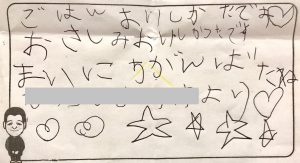 ごはんおいしかたでず
おさしみおいしかつたです
まいにちがんばたね
より